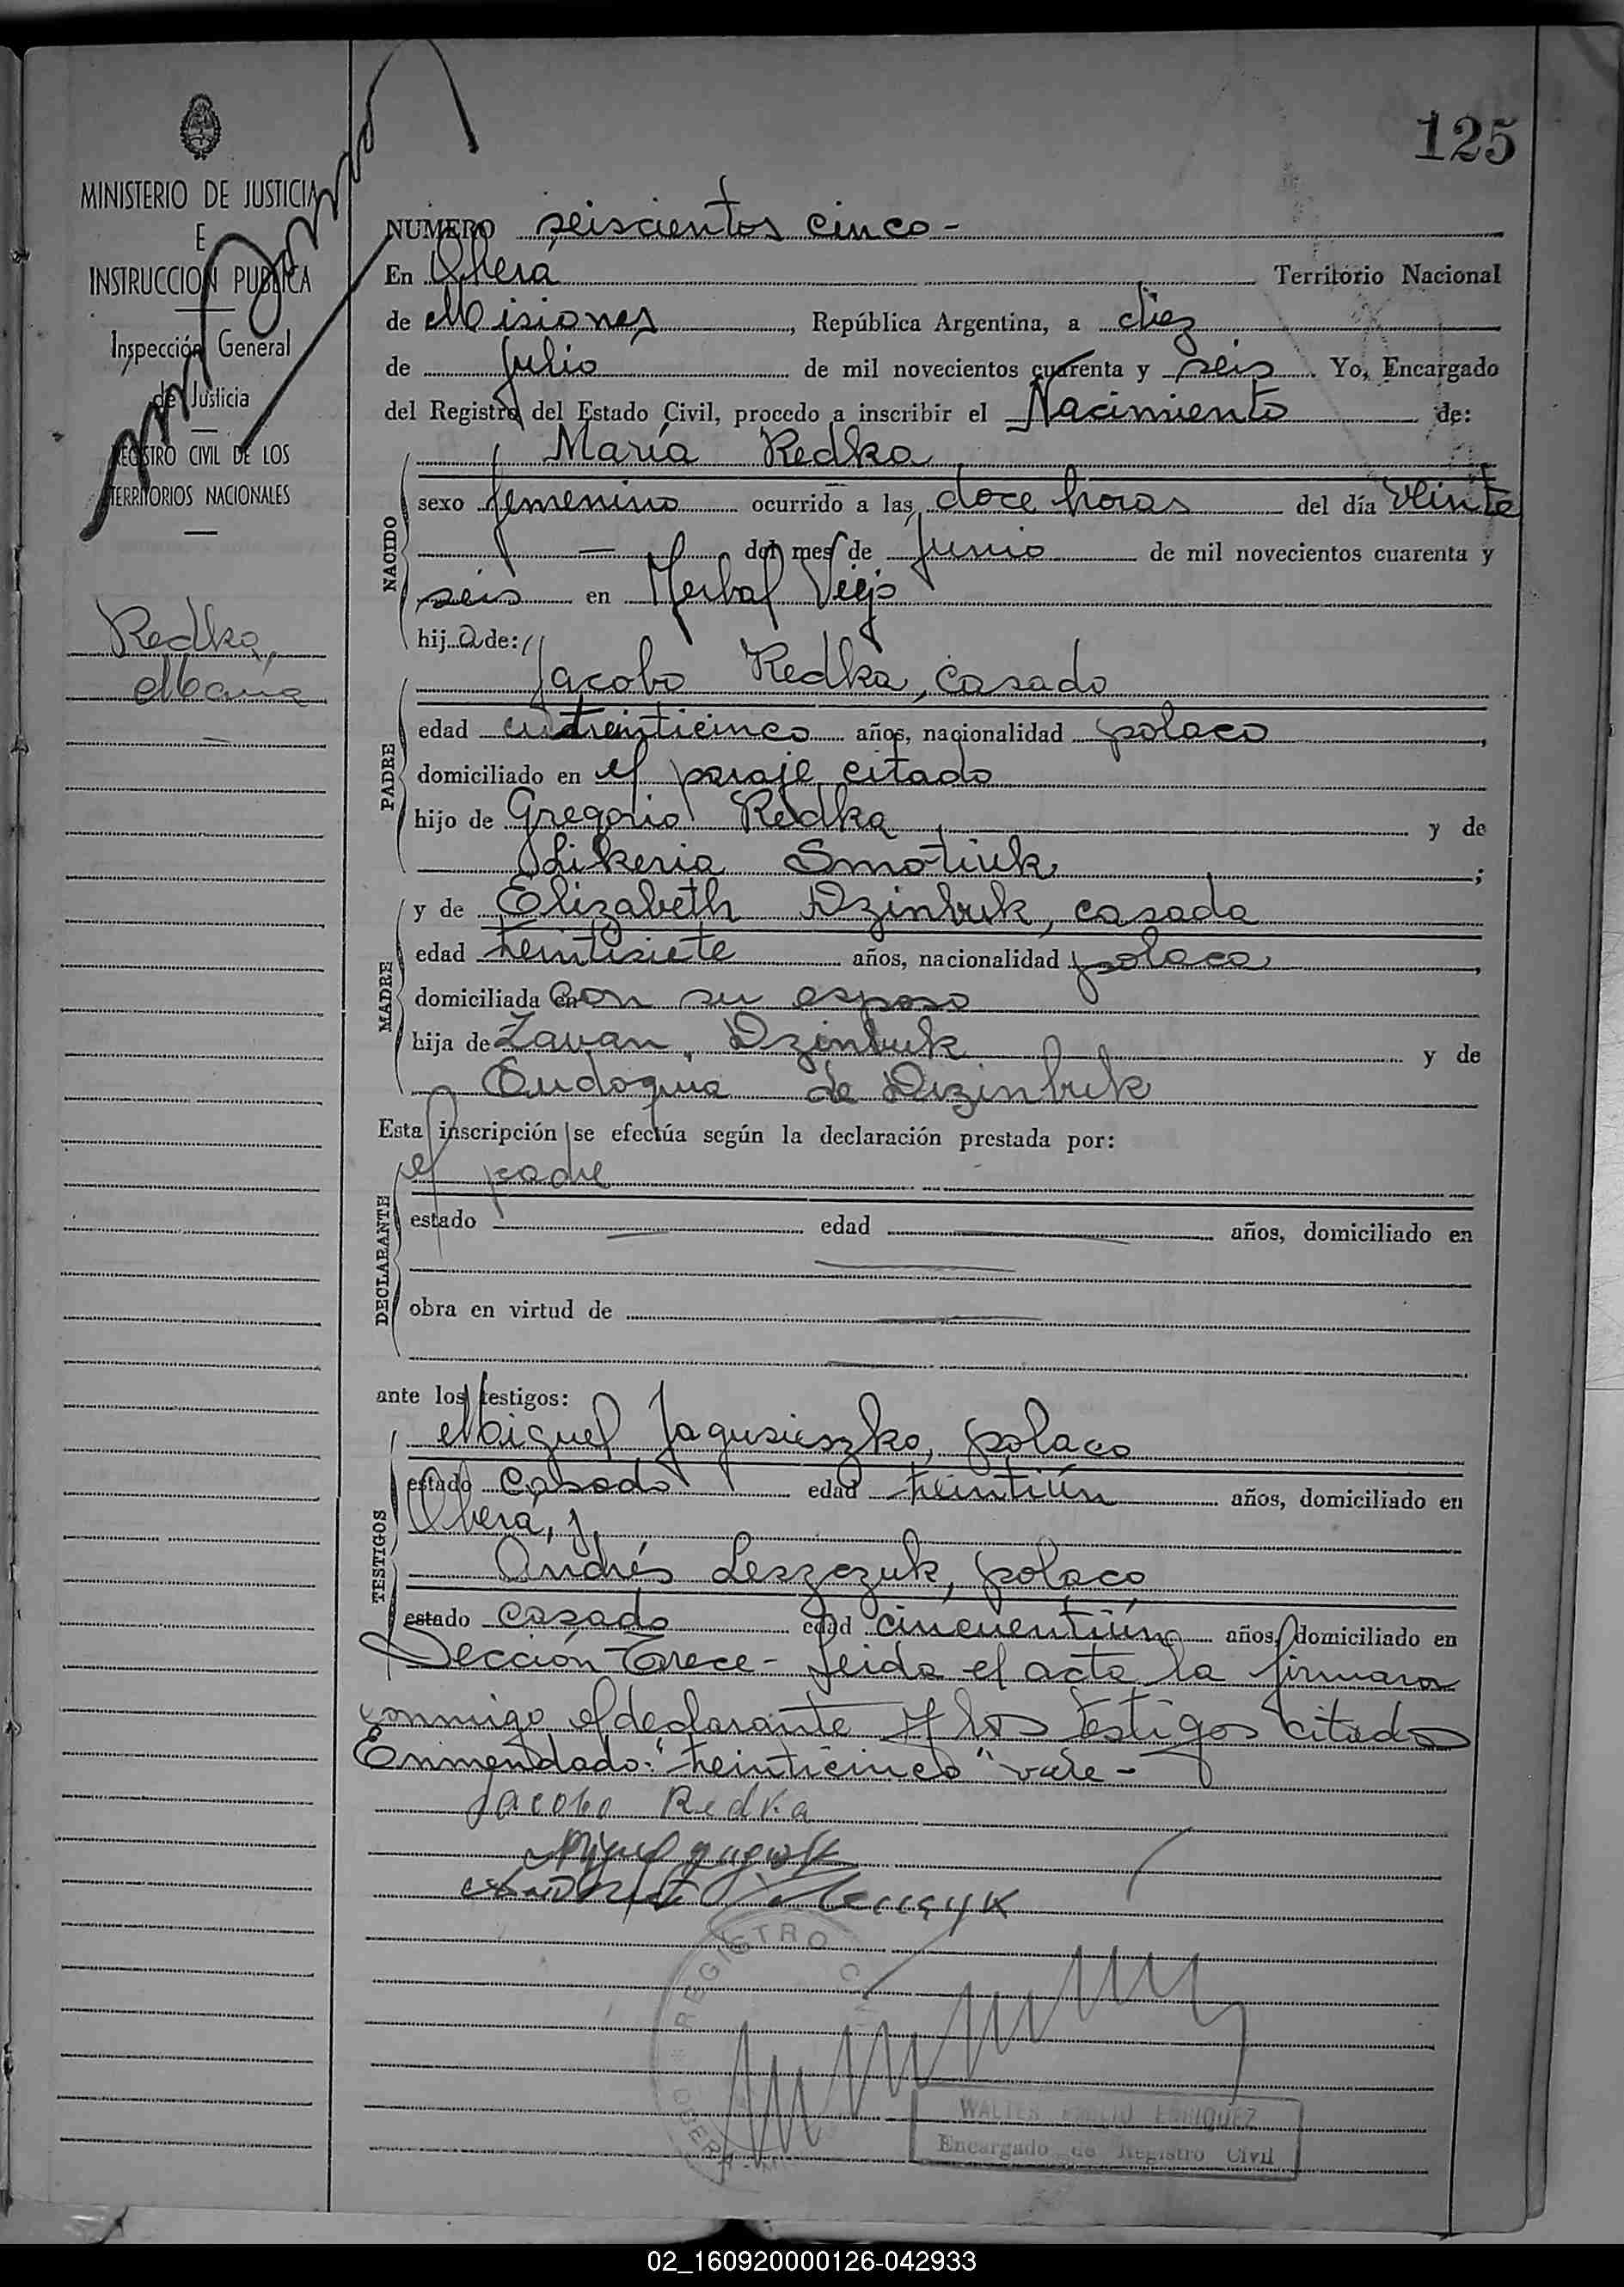 125
MINISTERIO DE JUSTICIA
E
INSTRUCCION PUBLICA
Inspección General
de Justicia
REGISTRO CIVIL DE LOS
TERRITORIOS NACIONALES
Redka,
Maria
NUMERO seiscientos cinco -
En Oberá Territorio Nacional
de Misiones, República Argentina, a diez
de Julio de mil novecientos cuarenta y seis. Yo, Encargado
del Registro del Estado Civil, procedo a inscribir el Nacimiento de:
NACIDO
María Redka
sexo femenino ocurrido a las doce horas del día veinte
— del mes de Junio de mil novecientos cuarenta y
seis en Yerbal Viejo
hija de:
PADRE
Jacobo Redka, casado
edad treinticinco años, nacionalidad polaco,
domiciliado en el paraje citado
hijo de Gregorio Redka y de
Likeria Smotiuk;
MADRE
y de Elizabeth Dzinbuk, casada
edad treintisiete años, nacionalidad polaca,
domiciliada en con su esposo
hija de Zavan Dzinbuk y de
Eudoquia de Dizinbuk
Esta inscripción se efectúa según la declaración prestada por:
DECLARANTE
el padre
estado — edad — años, domiciliado en
—
obra en virtud de —
—
ante los testigos:
TESTIGOS
Miguel Jagusieszko, polaco
estado casado edad treintiún años, domiciliado en
Oberá, y
Andrés Leszczuk, polaco
estado casado edad cincuentiún años, domiciliado en
Sección Trece - Leida el acta la firmaron
conmigo el declarante y los testigos citados
Enmendado: "treinticinco" vale -
Jacobo Redka
REGISTRO CIVIL
OBERA
WALTER EMILIO ENRIQUEZ
Encargado de Registro Civil
02_160920000126-042933